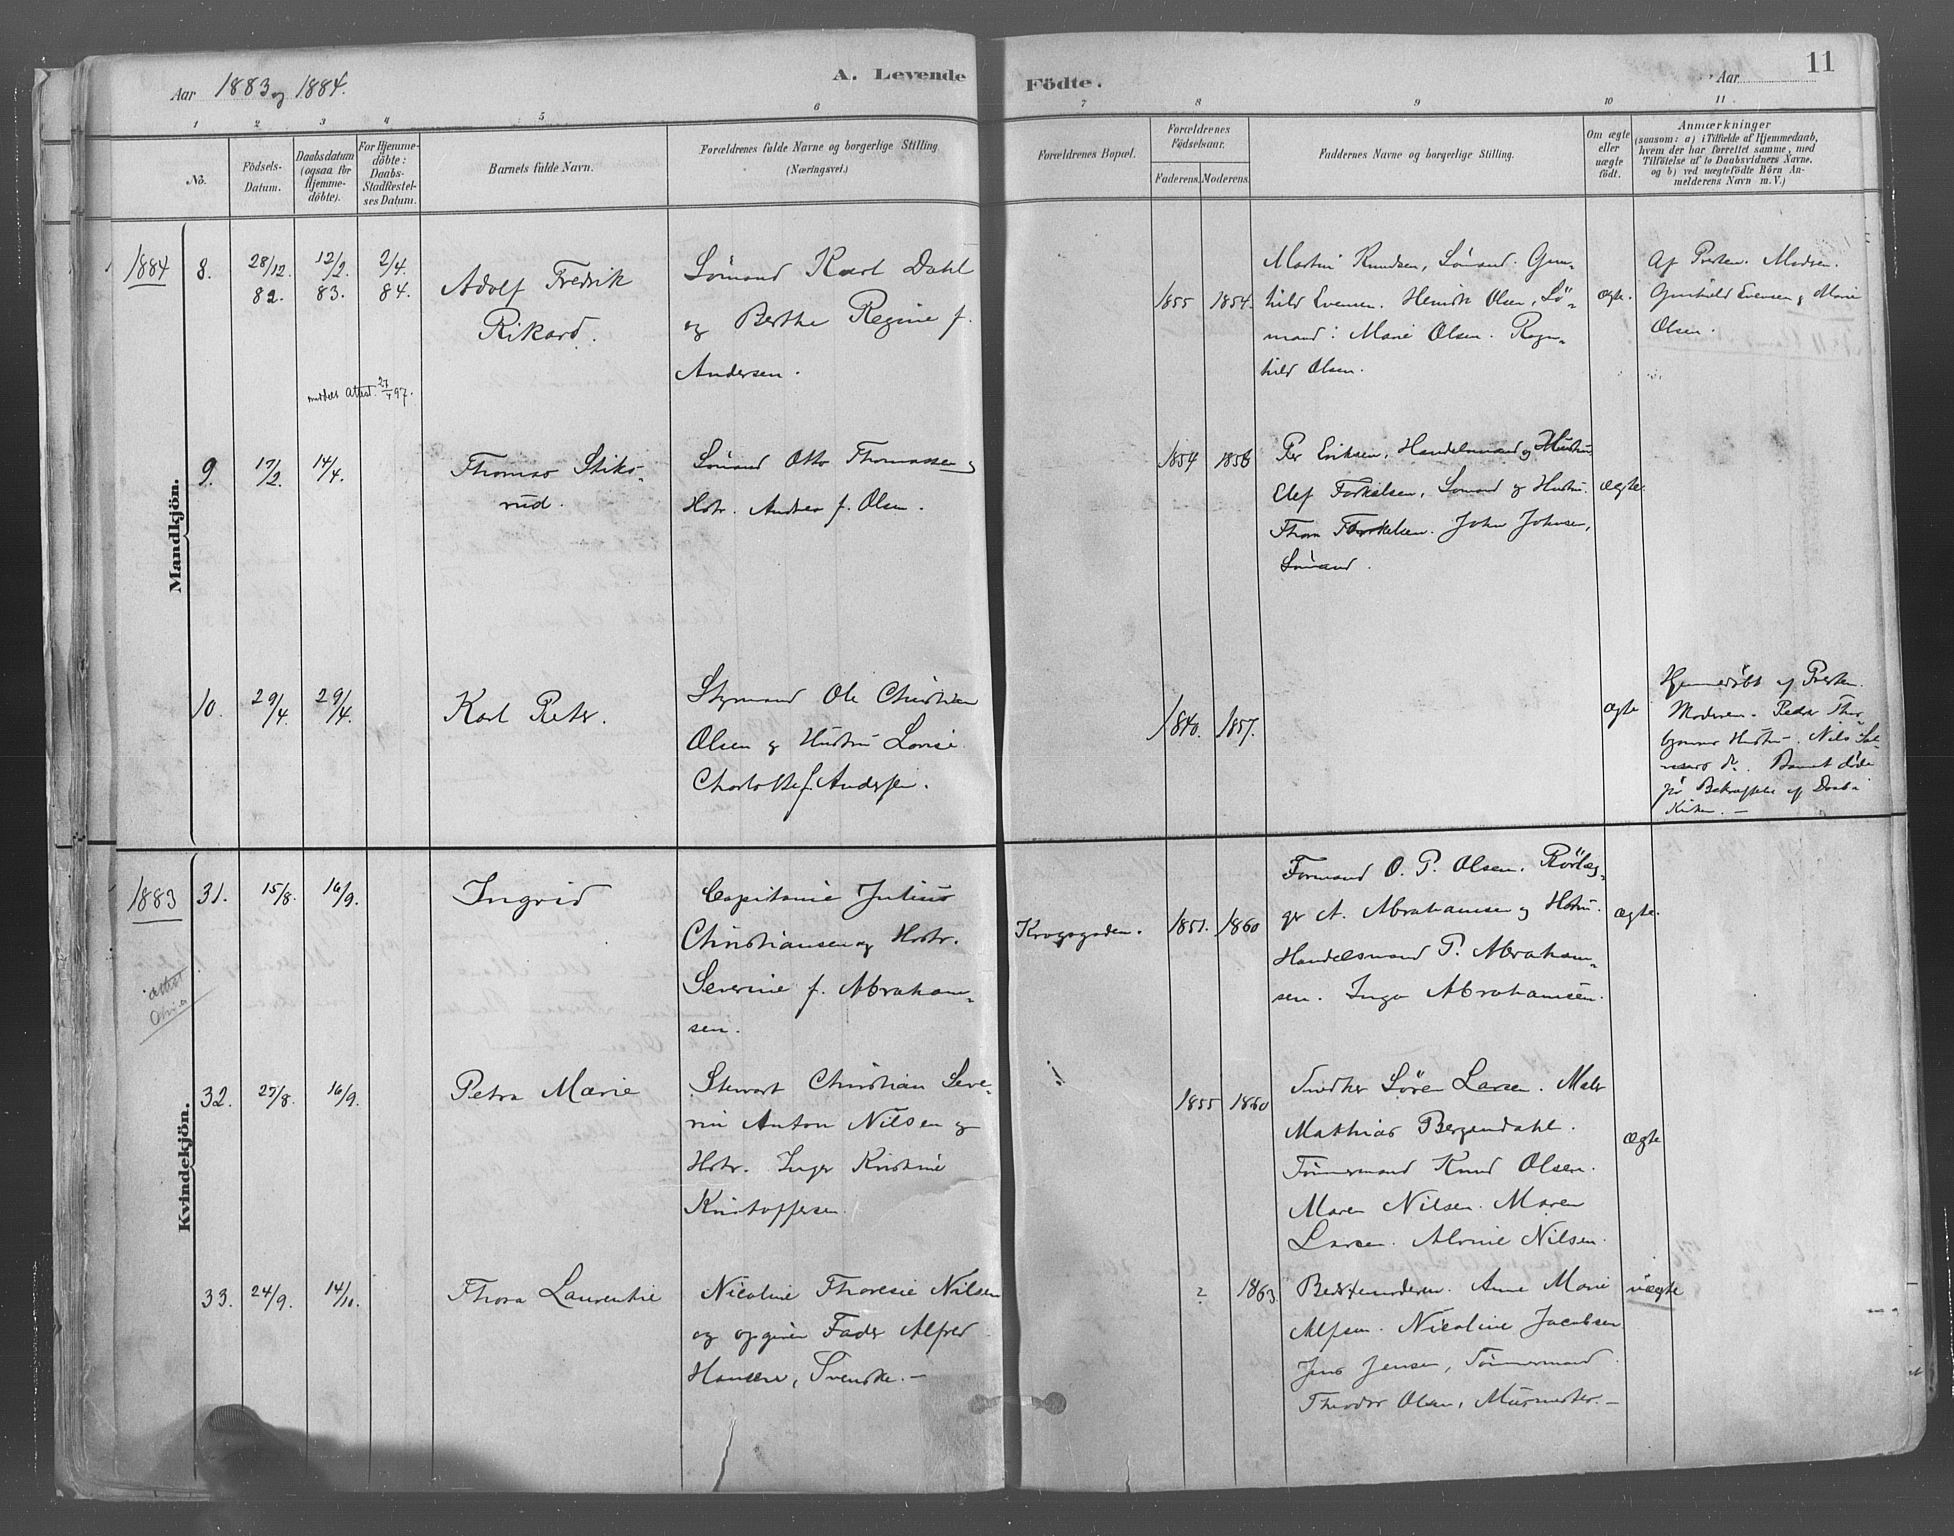 Aar 1883 og 1884.
A. Levende
Födte.
Aar
11
1
2
3
4
5
6
7
8
9
10
11
No.
Födsels-
Datum.
Daabsdatum
(ogsaa for
Hjemme-
döbte).
For Hjemme-
döbte:
Daabs-
Stadfæstel-
ses Datum.
Barnets fulde Navn.
Forældrenes fulde Navne og borgerlige Stilling
(Næringsvei.)
Forældrenes Bopæl.
Forældrenes
Födselsaar.
Faderens.
Moderens.
Faddernes Navne og borgerlige Stilling.
Om ægte
eller
uægte
födt.
Anmærkninger
(saasom: a) i Tilfælde af Hjemmedaab,
hvem der har forrettet samme, med
Tilföielse af to Daabsvidners Navne.
og b) ved uægtefödte Börn An-
melderens Navn m. V.)
Mandkjön.
1884
8.
28/12.
82.
12/2.
83.
2/4.
84.
Adolf Fredrik
Rikard.
Sömand Karl Dahl
og Berthe Regine f.
Andersen.
1855
1854.
Martin Knudsen, Sömand. Gun-
hild Evensen. Henrik Olsen, Sö-
mand: Marie Olsen. Ragn-
hild Olsen.
ægte.
Af Presten. Madsen.
Gunhild Evensen & Marie
Olsen.
meddelt Attest. 97.
9.
17/2
14/4.
Thomas Stiks-
rud.
Sömand Otto Thomassen og
Hstr. Andrea f. Olsen.
1854
1856
Per Eriksen, Handelsmand og Hustru
Elef Torkelsen, Sömand og Hustru
Thora Torkelsen. John Johnsen,
Sömand.
ægte.
10.
29/4.
29/4.
Karl Peter.
Styrmand Ole Christian
Olsen og Hustru Lovise
Charlotte f. Andersen.
1840.
1857.
ægte
Hjemmedöbt af Presten.
Moderen. Peder Thor
Hustru. Nils
Barnet döde
för Bekræftelse af Daab i
Kirken. —
Kvindekjön.
1883
31.
15/8.
16/9.
Ingvid
Capitaine Julius
Christiansen og Hstr.
Severine f. Abraham-
sen.
Krogsgaden.
1851.
1860
Formand O. P. Olsen. Rörlæg-
ger A. Abrahamsen og Hstru.
Handelsmand P. Abraham-
sen. Inga Abrahamsen.
ægte.
attest
32.
27/8.
16/9.
Petra Marie
Stewart Christian Seve-
rin Anton Nilsen og
Hstr. Inger Kristine
Kristoffersen.
1855
1860
Snedker Sören Larsen. Maler
Mathias Bergendahl.
Tömmermand Knud Olsen.
Maren Nilsen. Maren
Larsen. Alvine Nilsen.
ægte
33.
24/9.
14/10.
Thora Laurentie
Nicoline Thoresie Nilsen
og opgiven Fader Alfred
Hansen, Svenske. —
?
1863.
Bedstemoderen. Anne Marie
Alfsen. Nicoline Jacobsen
Jens Jensen, Tömmermand.
Theodor Olsen, Murmester. —
uægte